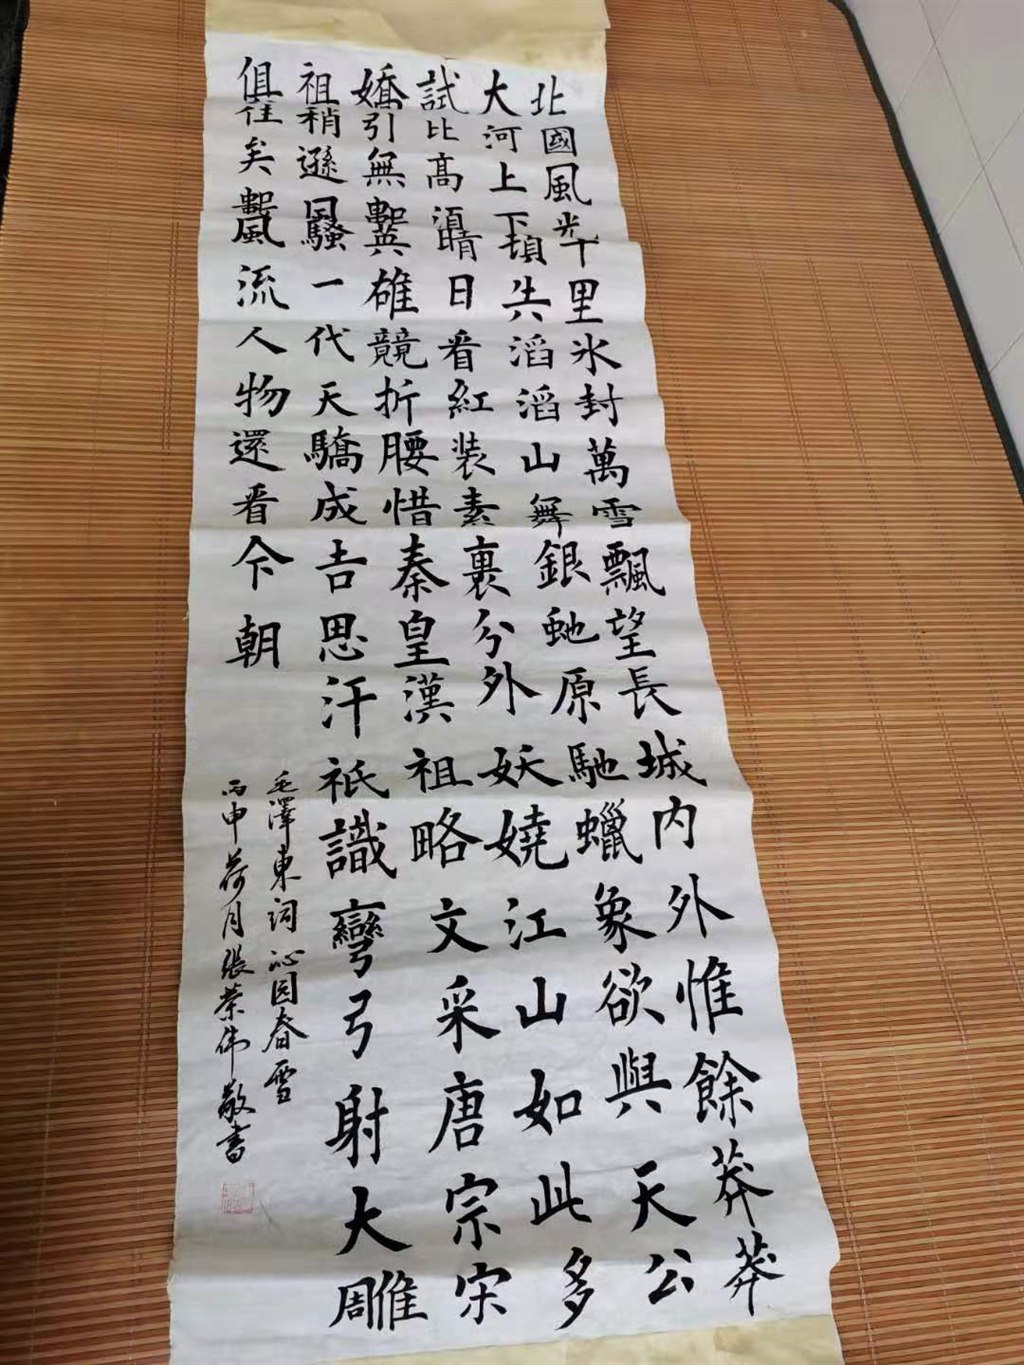 北國風光千里氷封萬雪飄望長城内外惟餘莽莽
大河上下頓失滔滔山舞銀虵原馳蠟象欲與天公
試比高須晴日看紅装素裹分外妖嬈江山如此多
嬌引無數英雄競折腰惜秦皇漢祖略文采唐宗宋
祖稍遜風騷一代天驕成吉思汗祇識彎弓射大雕
俱往矣數風流人物還看今朝
毛澤東词沁园春雪
丙申荷月張荣伟敬書